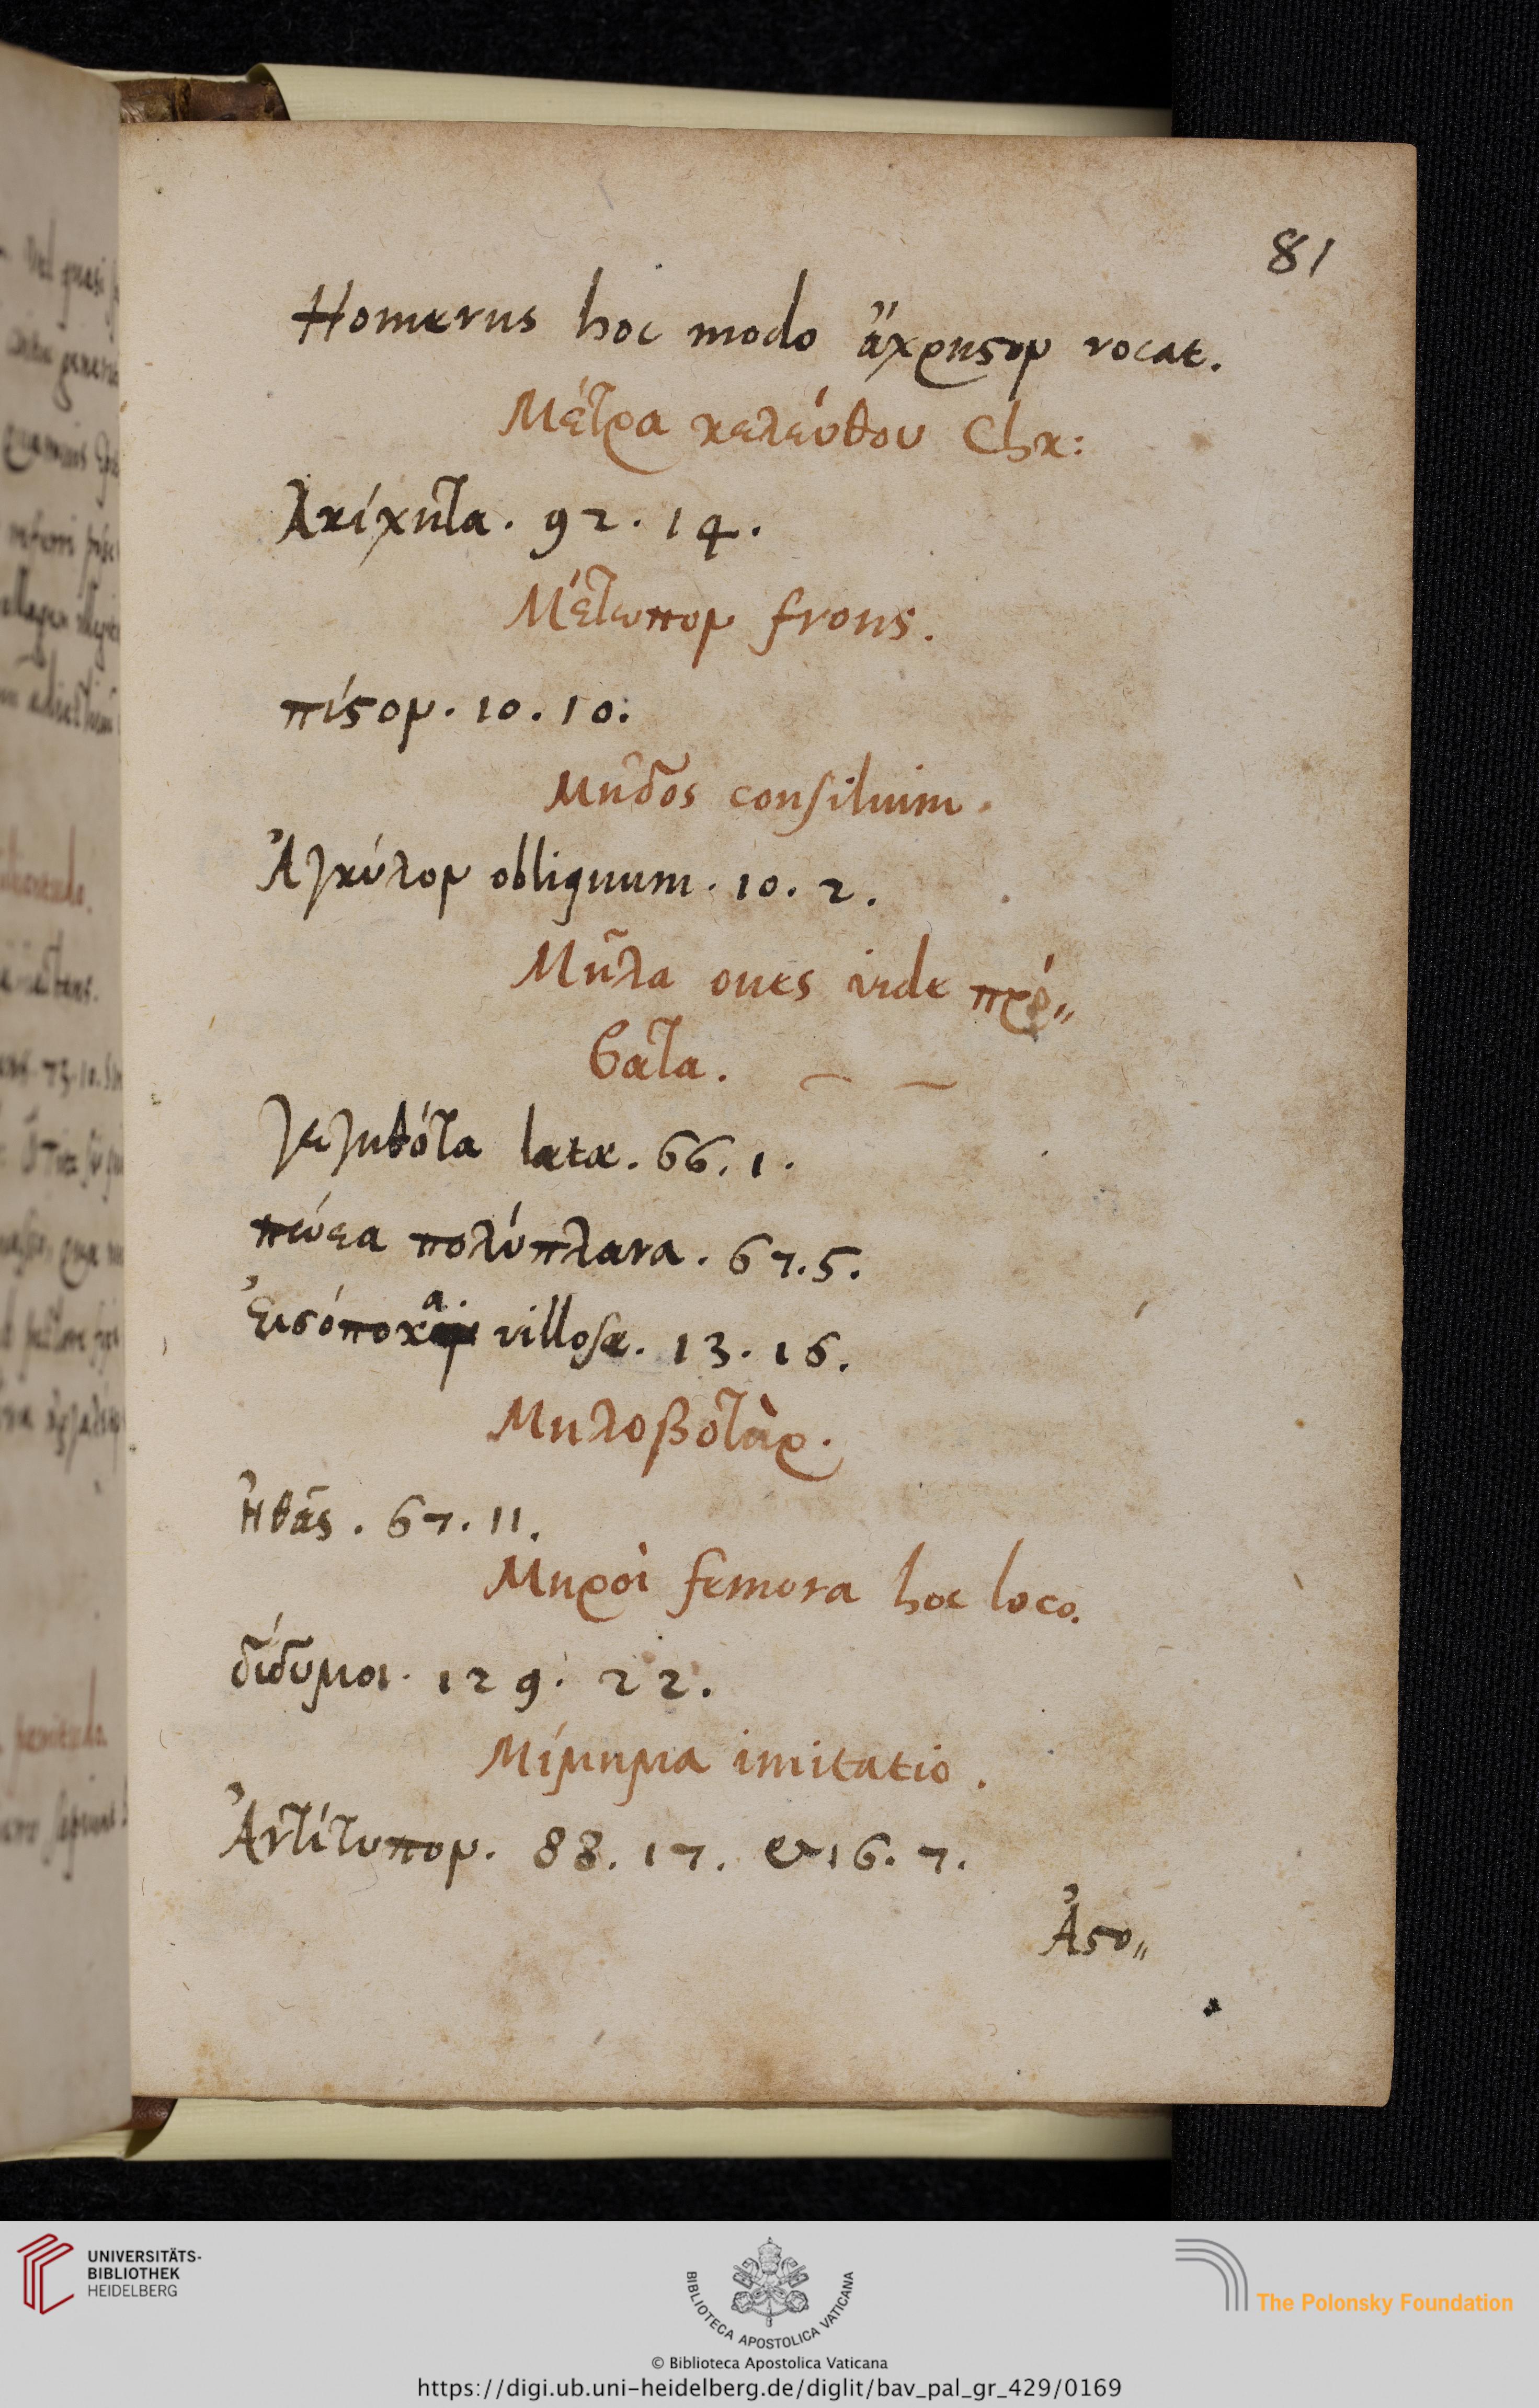 81
Homerus hoc modo ἄχρηστον vocat.
Μέτρα κελεύθου Chr:
Ἀκίχητα. 92. 14.
Μέτωπον frons.
πίστον. 10. 10.
Μῆδος consilium.
Ἀγκύλον obliquum. 10. 2.
Μῆλα oues vide πρό〃
βατα.
γεγηθότα lætæ. 66. 1.
πώεα πολύπλανα. 67. 5.
Εἰσόποκα. villosæ. 13. 16.
Μηλοβοτὰρ.
Ἠθὰς. 67. 11.
Μηροὶ femora hoc loco.
δίδυμοι. 129. 22.
Μίμημα imitatio.
Ἀντίτυπον. 88. 17. & 16. 7.
Ἀστο〃
UNIVERSITÄTS-
BIBLIOTHEK
HEIDELBERG
BIBLIOTECA APOSTOLICA VATICANA
The Polonsky Foundation
© Biblioteca Apostolica Vaticana
https://digi.ub.uni-heidelberg.de/diglit/bav_pal_gr_429/0169